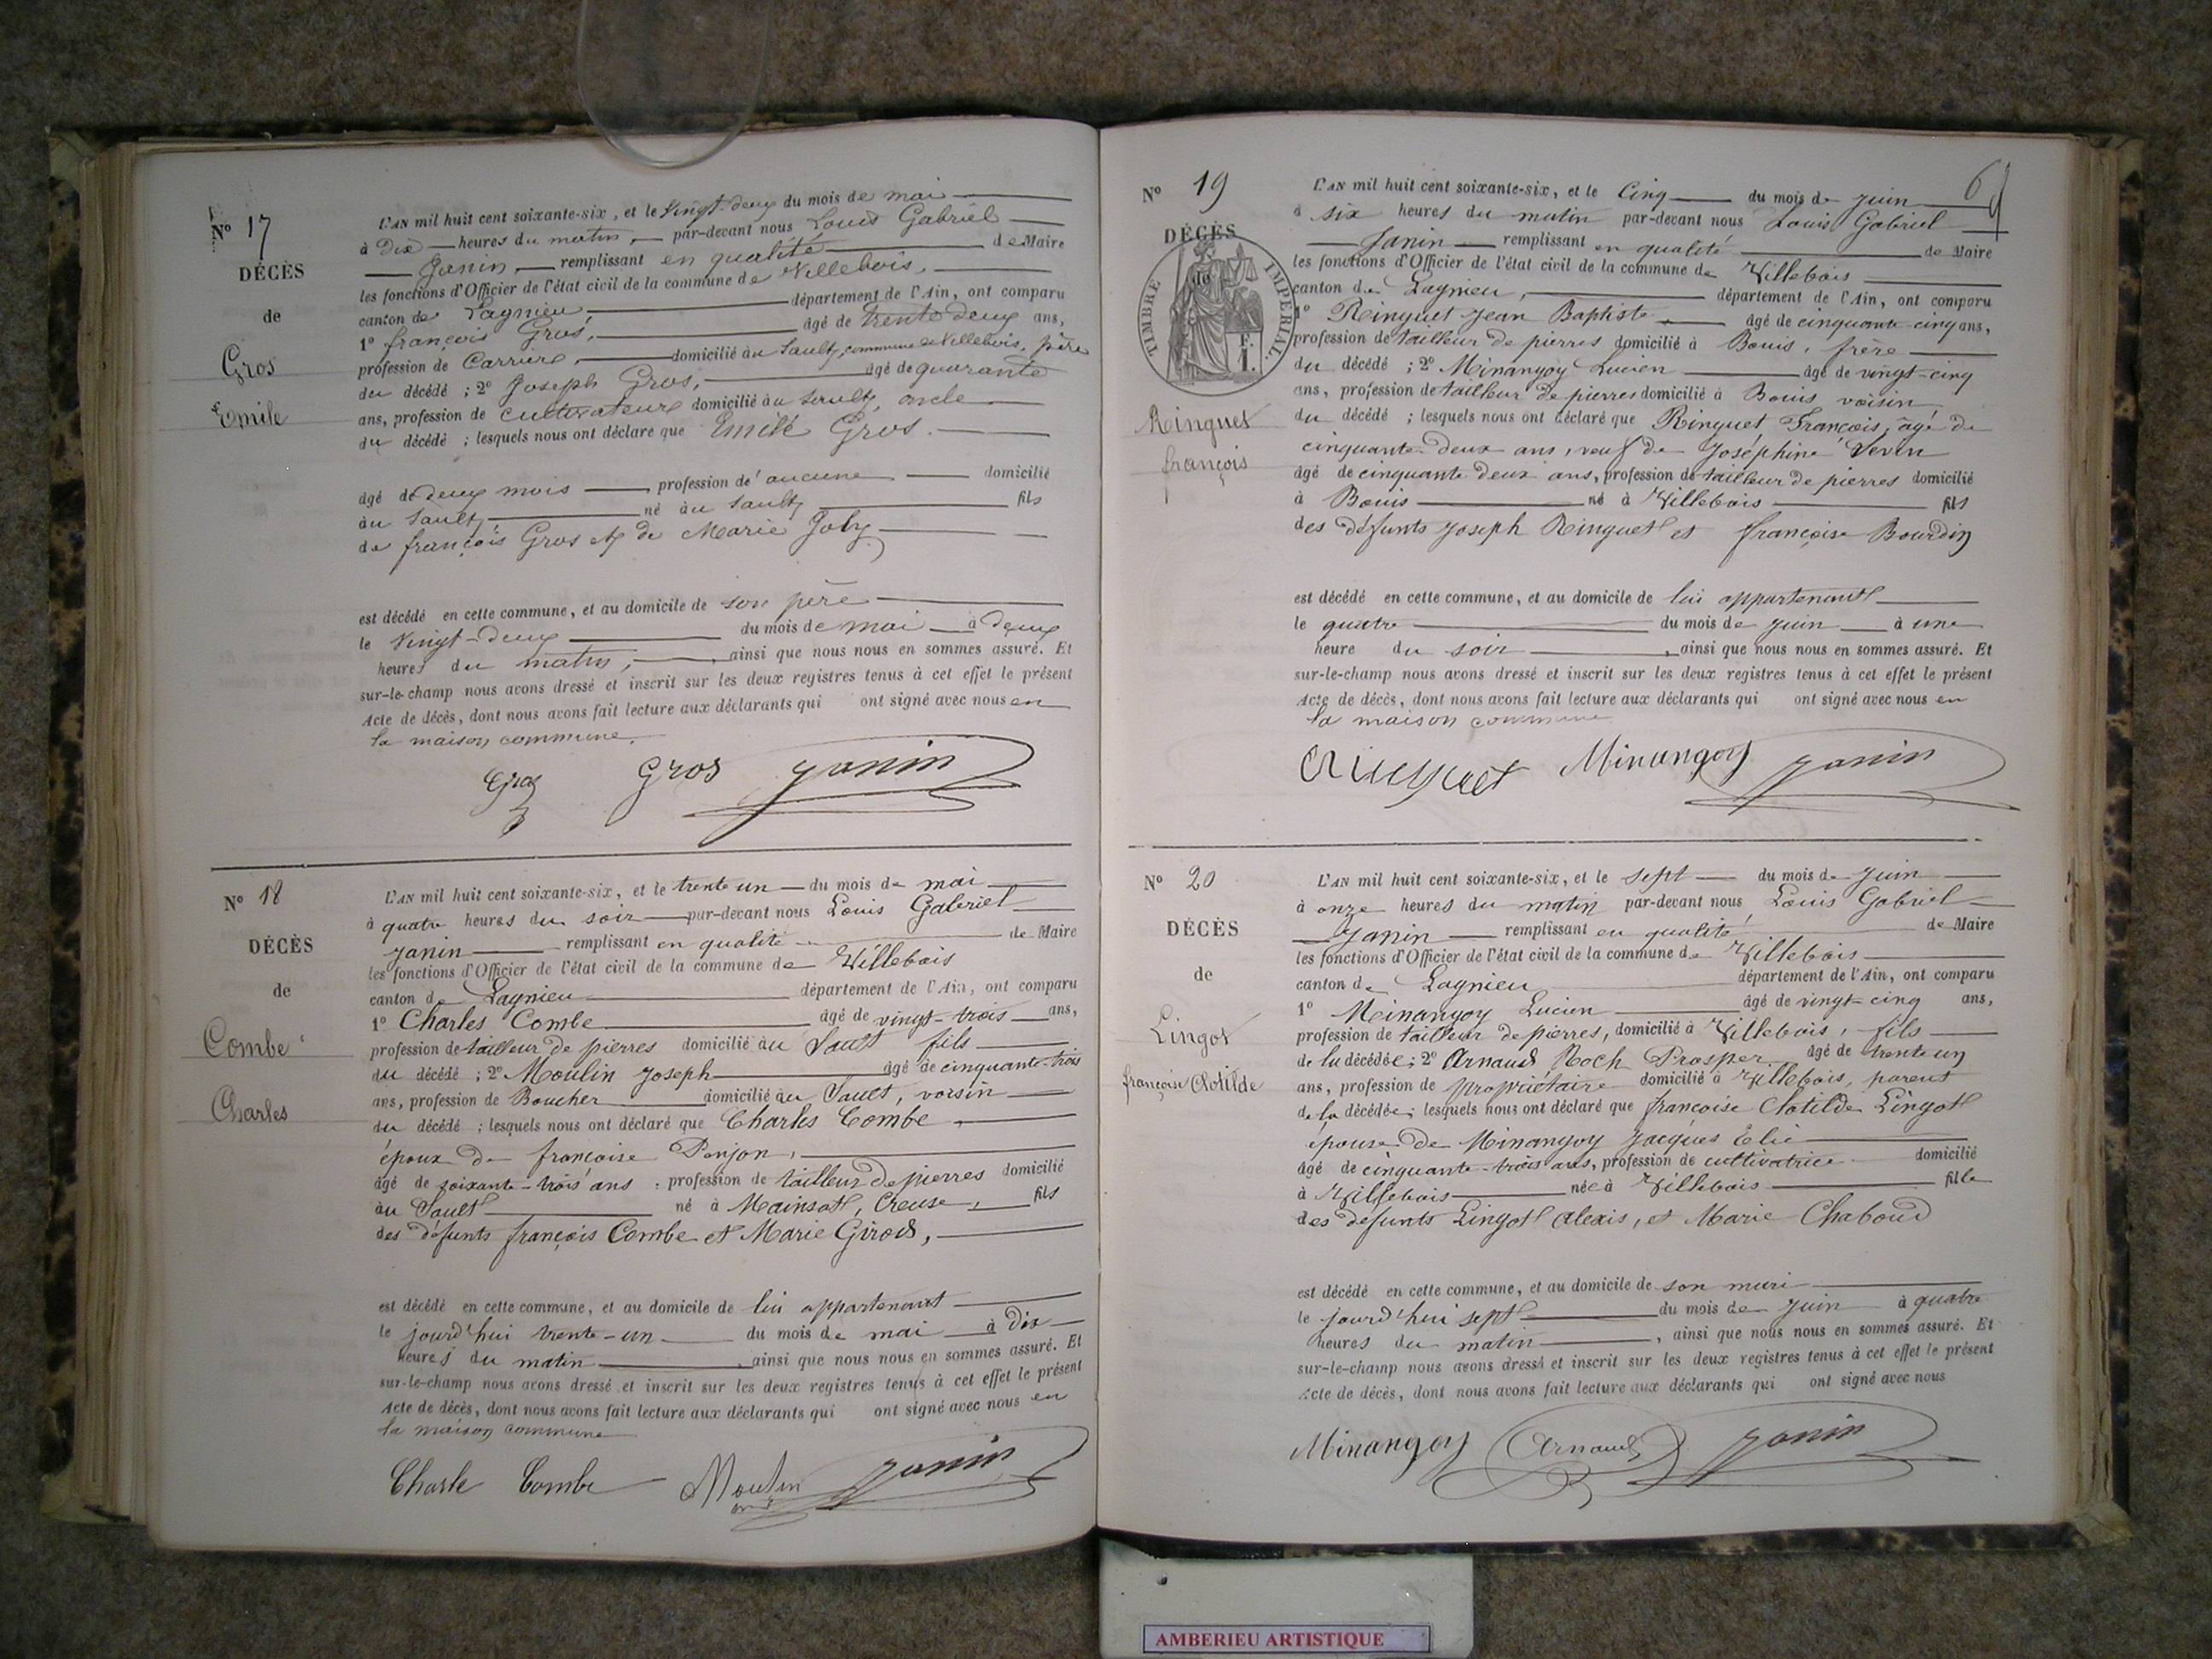 Nº 17
DÉCÈS
de
Gros
Emile
L'AN mil huit cent soixante-six, et le vingt-deux du mois de mai
à dix heures du matin, par-devant nous Louis Gabriel
Janin, remplissant en qualité de Maire
les fonctions d'Officier de l'état civil de la commune de Villebois,
canton de Lagnieu département de l'Ain, ont comparu
1º françois Gros, âgé de trente deux ans,
profession de Carriere, domicilié au Sault, commune de Villebois, père
du décédé ; 2º Joseph Gros, âgé de quarante
ans, profession de cultivateur domicilié au Sault, oncle
du décédé ; lesquels nous ont déclaré que Emile Gros.
âgé de deux mois profession d'aucune domicilié
au Sault, né au Sault fils
de françois Gros et de Marie Joly
est décédé en cette commune, et au domicile de son père
le vingt-deux du mois de mai à deux
heures du matin, ainsi que nous nous en sommes assuré. Et
sur-le-champ nous avons dressé et inscrit sur les deux registres tenus à cet effet le présent
Acte de décès, dont nous avons fait lecture aux déclarants qui ont signé avec nous en
la maison commune.
Gros Gros Janin
Nº 18
DÉCÈS
de
Combe
Charles
L'AN mil huit cent soixante-six, et le trente un du mois de mai
à quatre heures du soir par-devant nous Louis Gabriel
Janin remplissant en qualité de Maire
les fonctions d'Officier de l'état civil de la commune de Villebois
canton de Lagnieu département de l'Ain, ont comparu
1º Charles Combe âgé de vingt-trois ans,
profession de tailleur de pierres domicilié au Sault fils
du décédé ; 2º Moulin Joseph âgé de cinquante-trois
ans, profession de Boucher domicilié au Sault, voisin
du décédé ; lesquels nous ont déclaré que Charles Combe
époux de françoise Ponjon,
âgé de soixante-trois ans : profession de tailleur de pierres domicilié
au Sault né à Mainsat, Creuse, fils
des défunts françois Combe et Marie Girod,
est décédé en cette commune, et au domicile de lui appartenant
le jourd'hui trente-un du mois de mai à dix
heures du matin ainsi que nous nous en sommes assuré. Et
sur-le-champ nous avons dressé et inscrit sur les deux registres tenus à cet effet le présent
Acte de décès, dont nous avons fait lecture aux déclarants qui ont signé avec nous en
la maison commune
Charle Combe Moulin Janin
Nº 19
DÉCÈS
de
TIMBRE IMPERIAL.
F.
1.
Rinquet
françois
L'AN mil huit cent soixante-six, et le cinq du mois de juin
à six heures du matin par-devant nous Louis Gabriel
Janin remplissant en qualité de Maire
les fonctions d'Officier de l'état civil de la commune de Villebois
canton de Lagnieu, département de l'Ain, ont comparu
1º Rinquet Jean Baptiste âgé de cinquante-cinq ans,
profession de tailleur de pierres domicilié à Bouis, frère
du décédé ; 2º Minangoy Lucien âgé de vingt-cinq
ans, profession de tailleur de pierres domicilié à Bouis voisin
du décédé ; lesquels nous ont déclaré que Rinquet François, âgé de
cinquante-deux ans, veuf de Joséphine
âgé de cinquante deux ans, profession de tailleur de pierres domicilié
à Bouis né à Villebois fils
des défunts Joseph Rinquet et françoise Bourdin
est décédé en cette commune, et au domicile de lui appartenant
le quatre du mois de juin à une
heure du soir, ainsi que nous nous en sommes assuré. Et
sur-le-champ nous avons dressé et inscrit sur les deux registres tenus à cet effet le présent
Acte de décès, dont nous avons fait lecture aux déclarants qui ont signé avec nous en
la maison commune
Minangoy Janin
Nº 20
DÉCÈS
de
Lingot
françoise Clotilde
L'AN mil huit cent soixante-six, et le sept du mois de juin
à onze heures du matin par-devant nous Louis Gabriel
Janin remplissant en qualité de Maire
les fonctions d'Officier de l'état civil de la commune de Villebois
canton de Lagnieu département de l'Ain, ont comparu
1º Minangoy Lucien âgé de vingt-cinq ans,
profession de tailleur de pierres, domicilié à Villebois, fils
de la décédée ; 2º Arnaud Roch Prosper âgé de trente un
ans, profession de propriétaire domicilié à Villebois, parent
de la décédée ; lesquels nous ont déclaré que françoise Clotilde Lingot
épouse de Minangoy Jacques Elie
âgé de cinquante-trois ans, profession de cultivatrice domicilié
à Villebois née à Villebois fille
des défunts Lingot Alexis, et Marie Chaboud
est décédé en cette commune, et au domicile de son mari
le jourd'hui sept du mois de juin à quatre
heures du matin, ainsi que nous nous en sommes assuré. Et
sur-le-champ nous avons dressé et inscrit sur les deux registres tenus à cet effet le présent
Acte de décès, dont nous avons fait lecture aux déclarants qui ont signé avec nous
Minangoy Arnaud Janin
AMBERIEU ARTISTIQUE